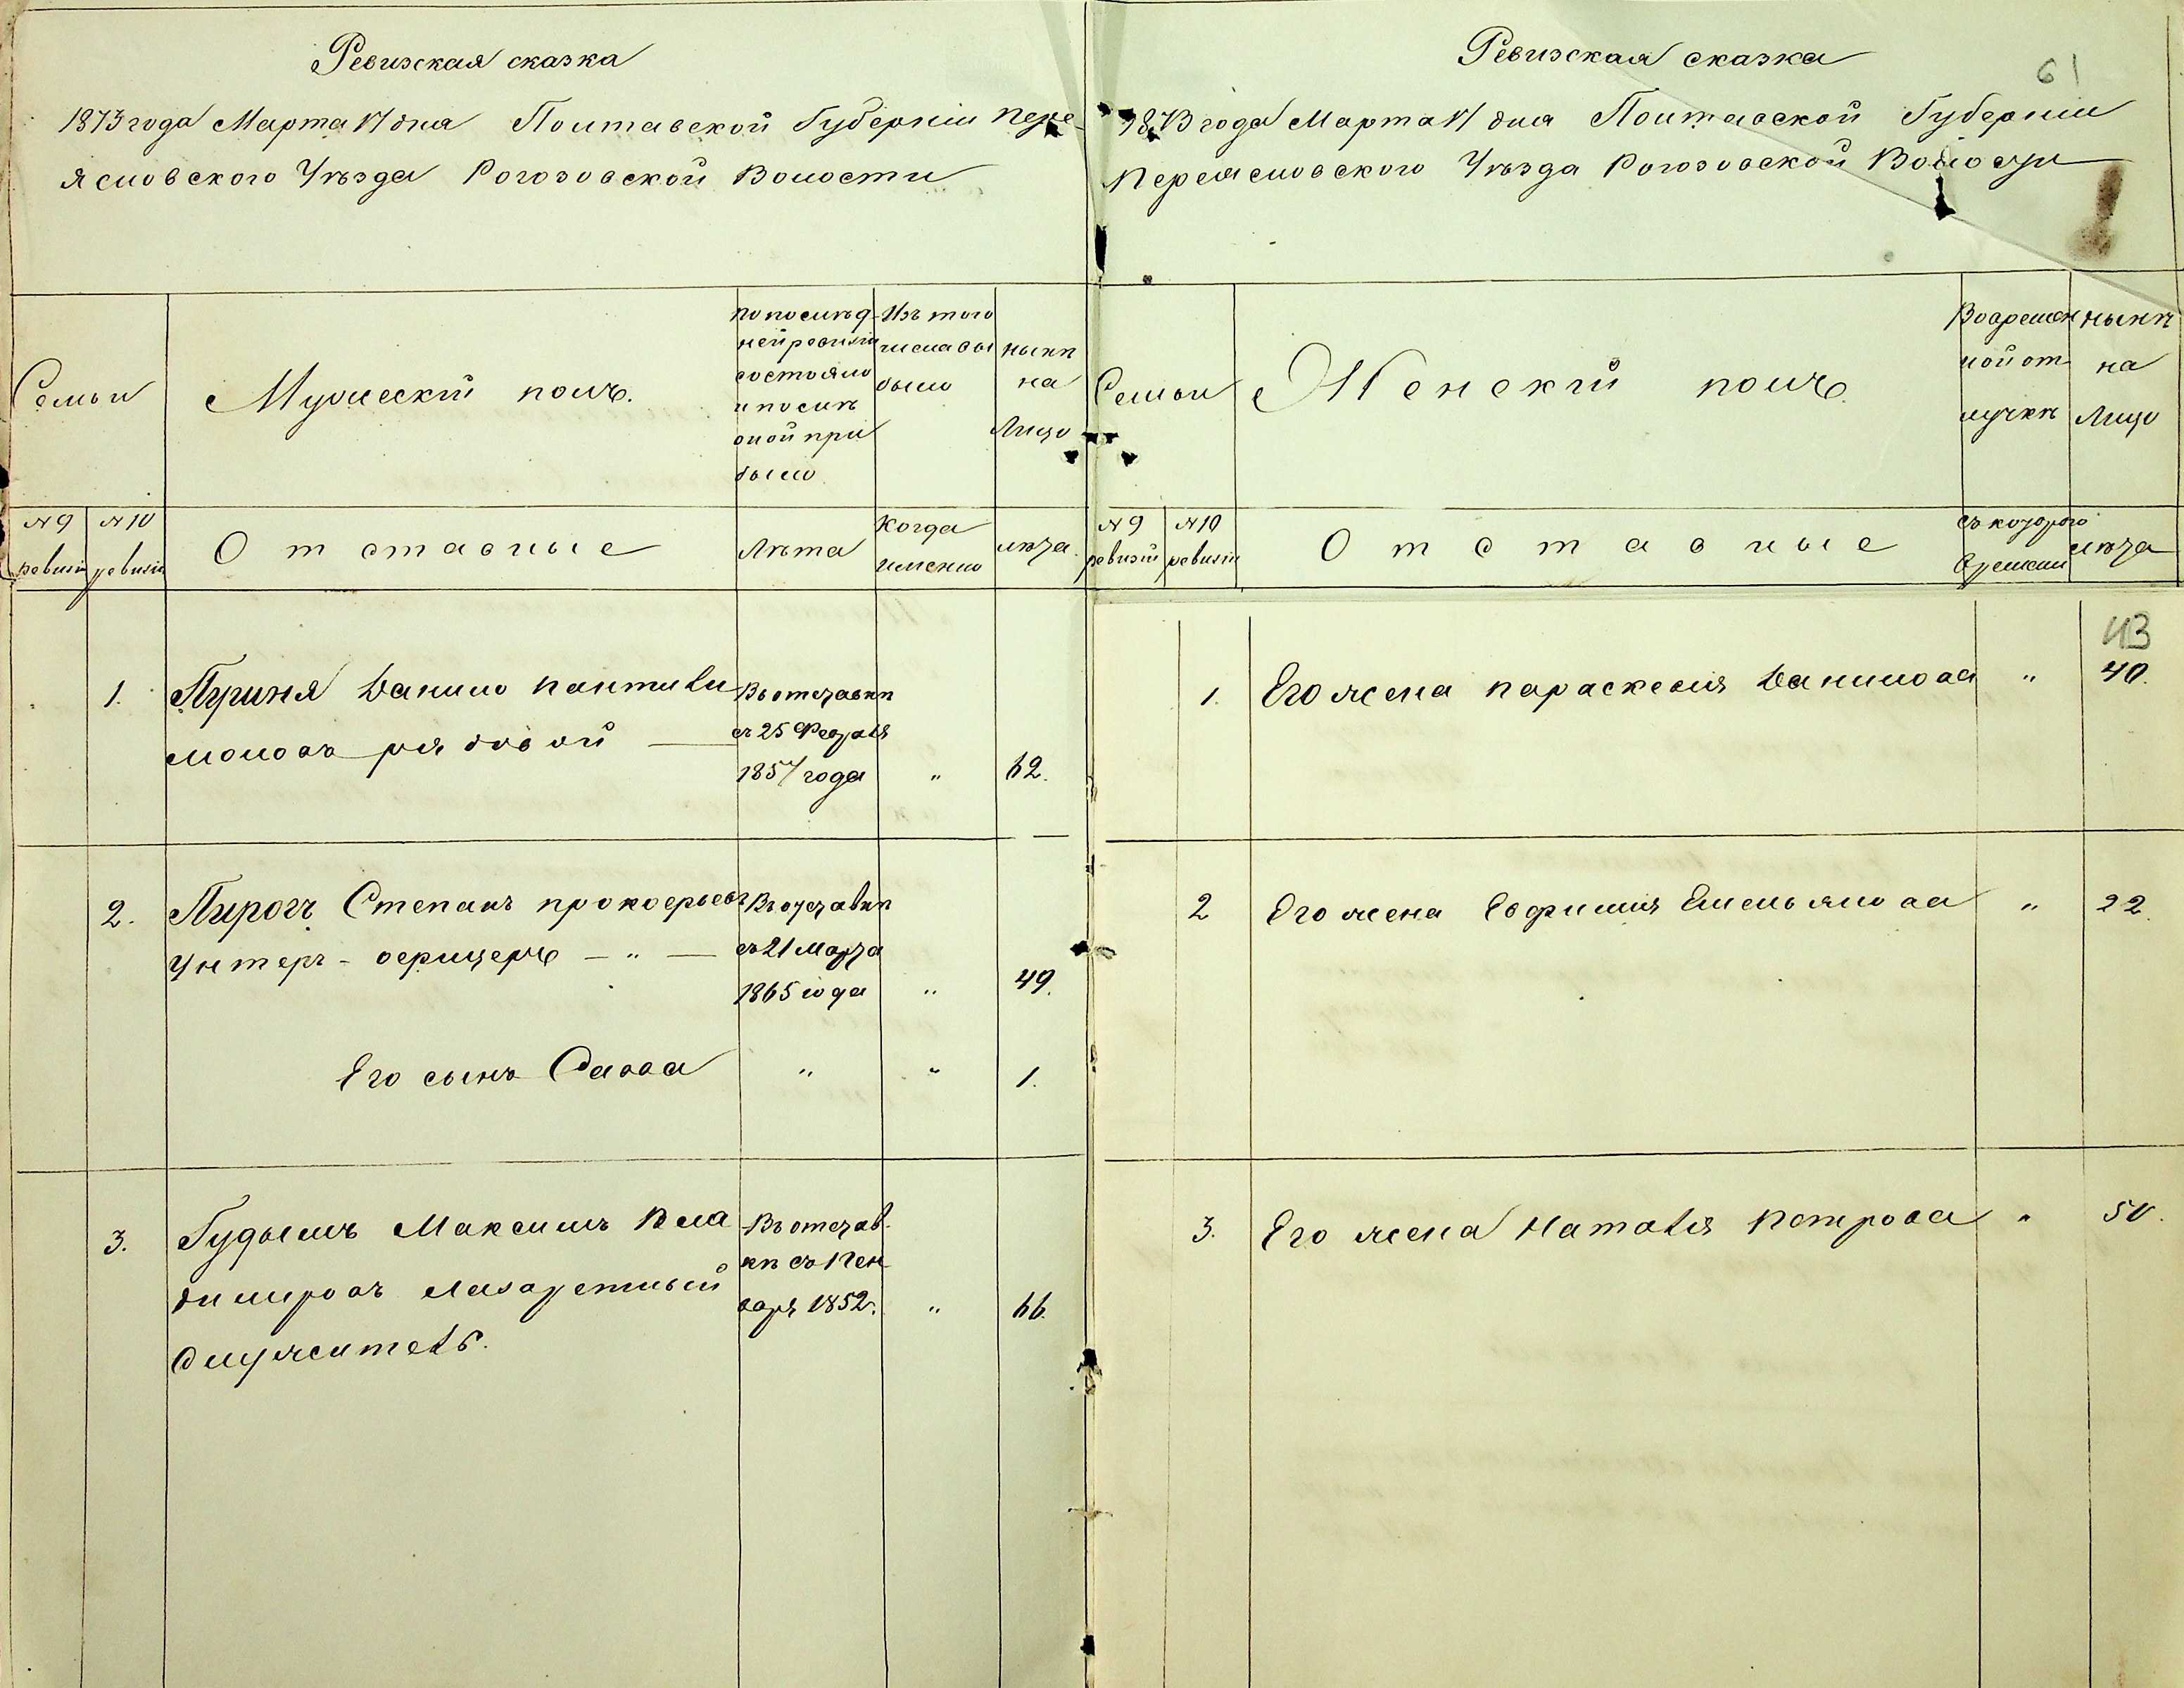 Ревизская сказка
1873 года Марта 17 дня Полтавской Губерніи Пере-
яславского Уѣзда Рогозовской Волости
Семьи
Мужескій полъ.
по послѣд-
ней ревизіи
состояло
и послѣ
оной при
было
Изъ того
числа вы
было
нынѣ
на
Лицо
№ 9
ревизіи
№ 10
ревизіи
Отставные
Лѣта
Когда
именно
лѣта.
1.
Данило Пантили
моновъ рядовой
Въ отставкѣ
съ 25 Февраля
1857 года
"
62.
2.
Пирогъ Степанъ Прокофьевъ
Унтеръ-офицеръ — " —
Въ отставкѣ
съ 21 Марта
1865 года
"
49.
Его сынъ Савва
"
"
1.
3.
Гудымъ Максимъ Вла
димировъ Лазаретный
Служитель.
Въ отстав-
кѣ съ Ген
варя 1852.
"
66.
Ревизская сказка
61
1873 года Марта 17 дня Полтавской Губерніи
Переяславского Уѣзда Рогозовской Волости
Семьи
Женскій полъ.
Во времен
ной от
лучкѣ
нынѣ
на
Лицо
№ 9
ревизіи
№ 10
ревизіи
Отставные
съ котораго
времени
лѣта
43
1.
Его жена Параскевія Данилова
"
40.
2
Его жена Евфимія Емельянова
"
22.
3.
Его жена Наталія Петрова
"
50.